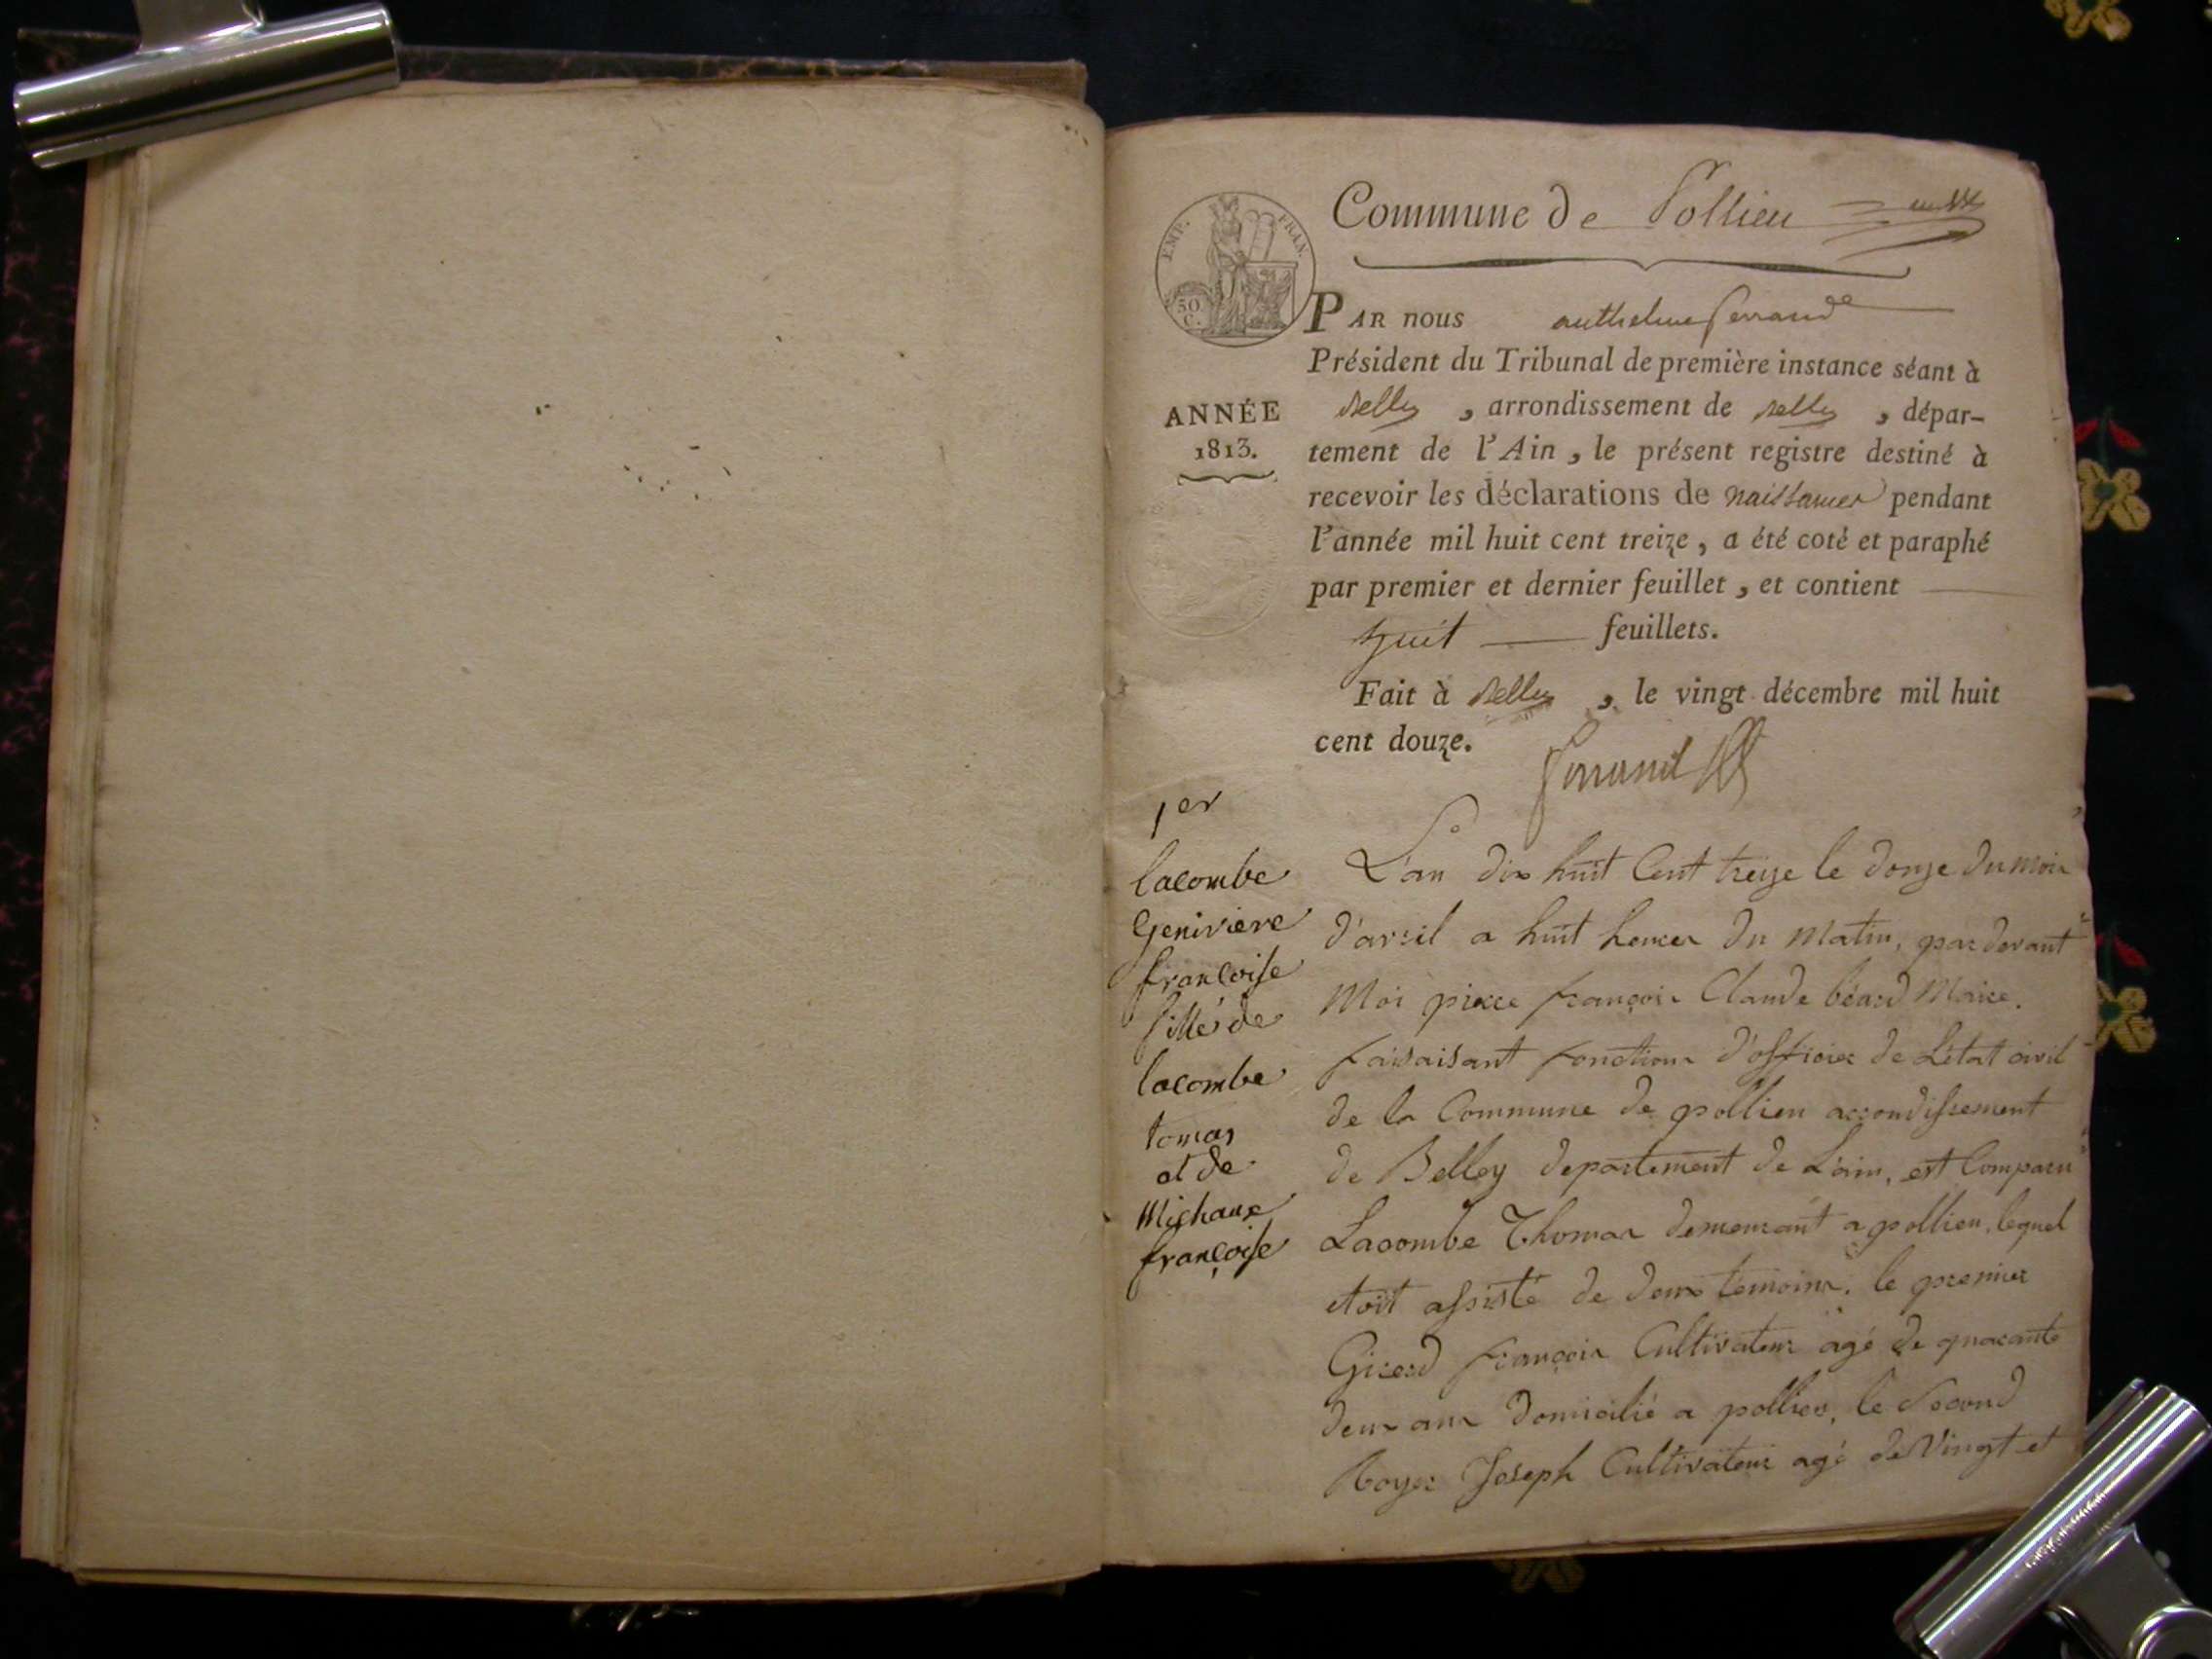 Commune de Pollieu
EMP. FRAN.
50
C.
PAR nous anthelme ferrand
Président du Tribunal de première instance séant à
Belley , arrondissement de Belley , dépar-
ANNÉE
1813.
tement de l'Ain , le présent registre destiné à
recevoir les déclarations de naissances pendant
l'année mil huit cent treize , a été coté et paraphé
par premier et dernier feuillet , et contient
huit feuillets.
Fait à Belley , le vingt décembre mil huit
cent douze.
Ferrand
1er
lacombe
Genivieve
françoise
fille de
lacombe
tomas
et de
Michaux
françoise
L'an dix huit Cent treize le donze du mois
d'avril a huit heures du matin, par devant
Moi pierre françois Claude béard Maire.
faisaisant fonctions d'officier de L'état civil
de la Commune de pollieu arrondissement
de Belley departement de L'ain, est Comparu
Lacombe Thomas demeurant a pollieu, lequel
etoit assisté de deux témoins. le premier
Girerd françois Cultivateur agé de quarante
deux ans domicilié a pollieu, le Second
Royer Joseph Cultivateur agé de Vingt et